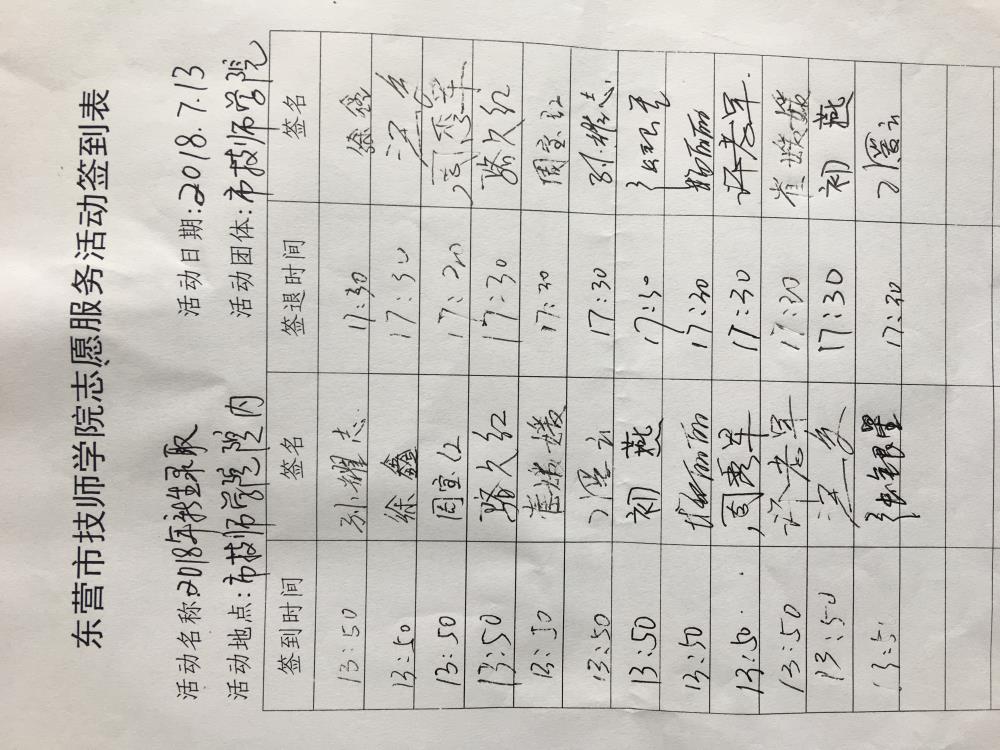 东营市技师学院志愿服务活动签到表
活动名称:2018年新生录取 活动日期:2018.7.13
活动地点:市技师学院院内 活动团体:市技师学院
签到时间 签名 签退时间 签名
13:50 刘耀志 17:30 徐鑫
13:50 徐鑫 17:30
13:50 周宝红 17:30 周秀军
13:50 骆久红 17:30 骆久红
13:50 崔媛媛 17:30 周宝红
13:50 17:30 刘耀志
13:50 初燕 17:30
13:50 17:30
13:50 周秀军 17:30 许老军
13:50 许老军 17:30 崔媛媛
13:50 17:30 初燕
13:5 17:30